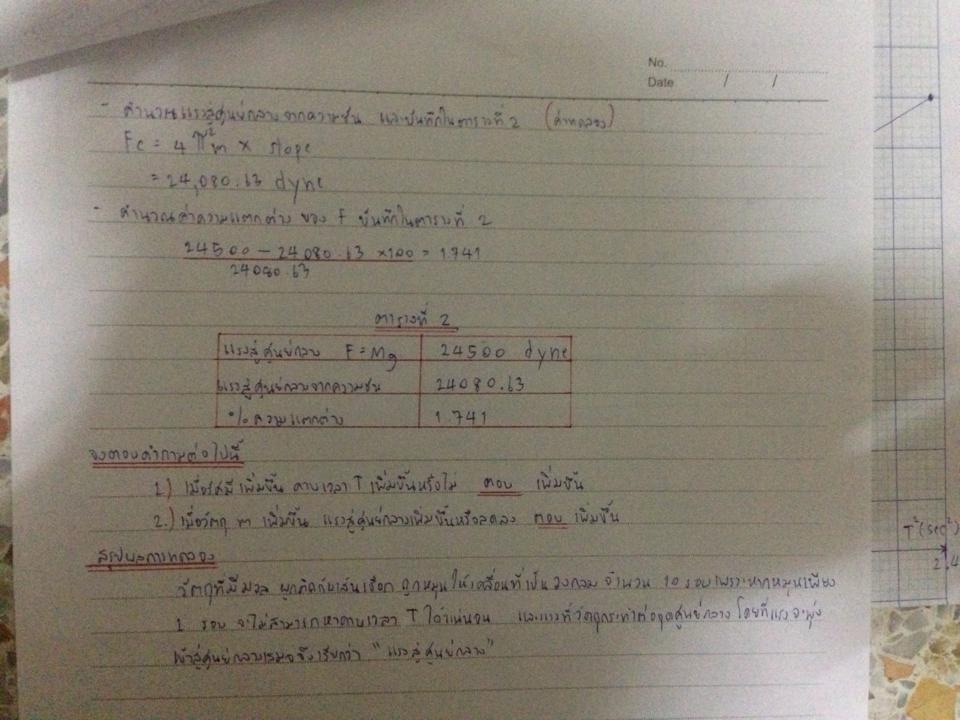 No.
Date / /
- คำนวณแรงสู่ศูนย์กลางจากความชัน และบันทึกในตารางที่ 2 (ค่าทดลอง)
Fc = 4π²m × slope
= 24,080.63 dyne
- คำนวณค่าความแตกต่าง ของ F บันทึกในตารางที่ 2
24500 − 24080.63 ×100 = 1.741
24080.63
ตารางที่ 2
แรงสู่ศูนย์กลาง F = Mg 24500 dyne
แรงสู่ศูนย์กลางจากความชัน 24080.63
% ความแตกต่าง 1.741
จงตอบคำถามต่อไปนี้
1.) เมื่อรัศมีเพิ่มขึ้น คาบเวลา T เพิ่มขึ้นหรือไม่ ตอบ เพิ่มขึ้น
2.) เมื่อวัตถุ m เพิ่มขึ้น แรงสู่ศูนย์กลางเพิ่มขึ้นหรือลดลง ตอบ เพิ่มขึ้น
สรุปผลการทดลอง
วัตถุที่มีมวล ผูกติดกับเส้นเชือก ถูกหมุนให้เคลื่อนที่เป็นวงกลม จำนวน 10 รอบ เพราะหากหมุนเพียง
1 รอบ จะไม่สามารถหาคาบเวลา T ได้แน่นอน และแรงที่วัตถุกระทำต่อจุดศูนย์กลาง โดยที่แรงจะพุ่ง
เข้าสู่ศูนย์กลางเสมอ จึงเรียกว่า "แรงสู่ศูนย์กลาง"
T²(sec²)
2.4